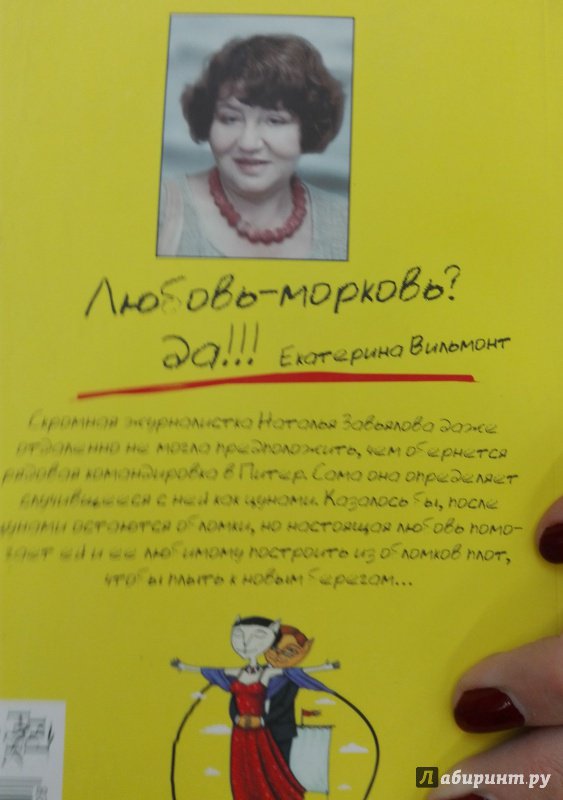 Любовь-морковь?
Да!!! Екатерина Вильмонт
Скромная журналистка Наталья Завьялова даже
отдаленно не могла предположить, чем обернется
рядовая командировка в Питер. Сама она определяет
случившееся с ней как цунами. Казалось бы, после
цунами остаются обломки, но настоящая любовь помо-
гает ей и ее любимому построить из обломков плот,
чтобы плыть к новым берегам...
Лабиринт.ру